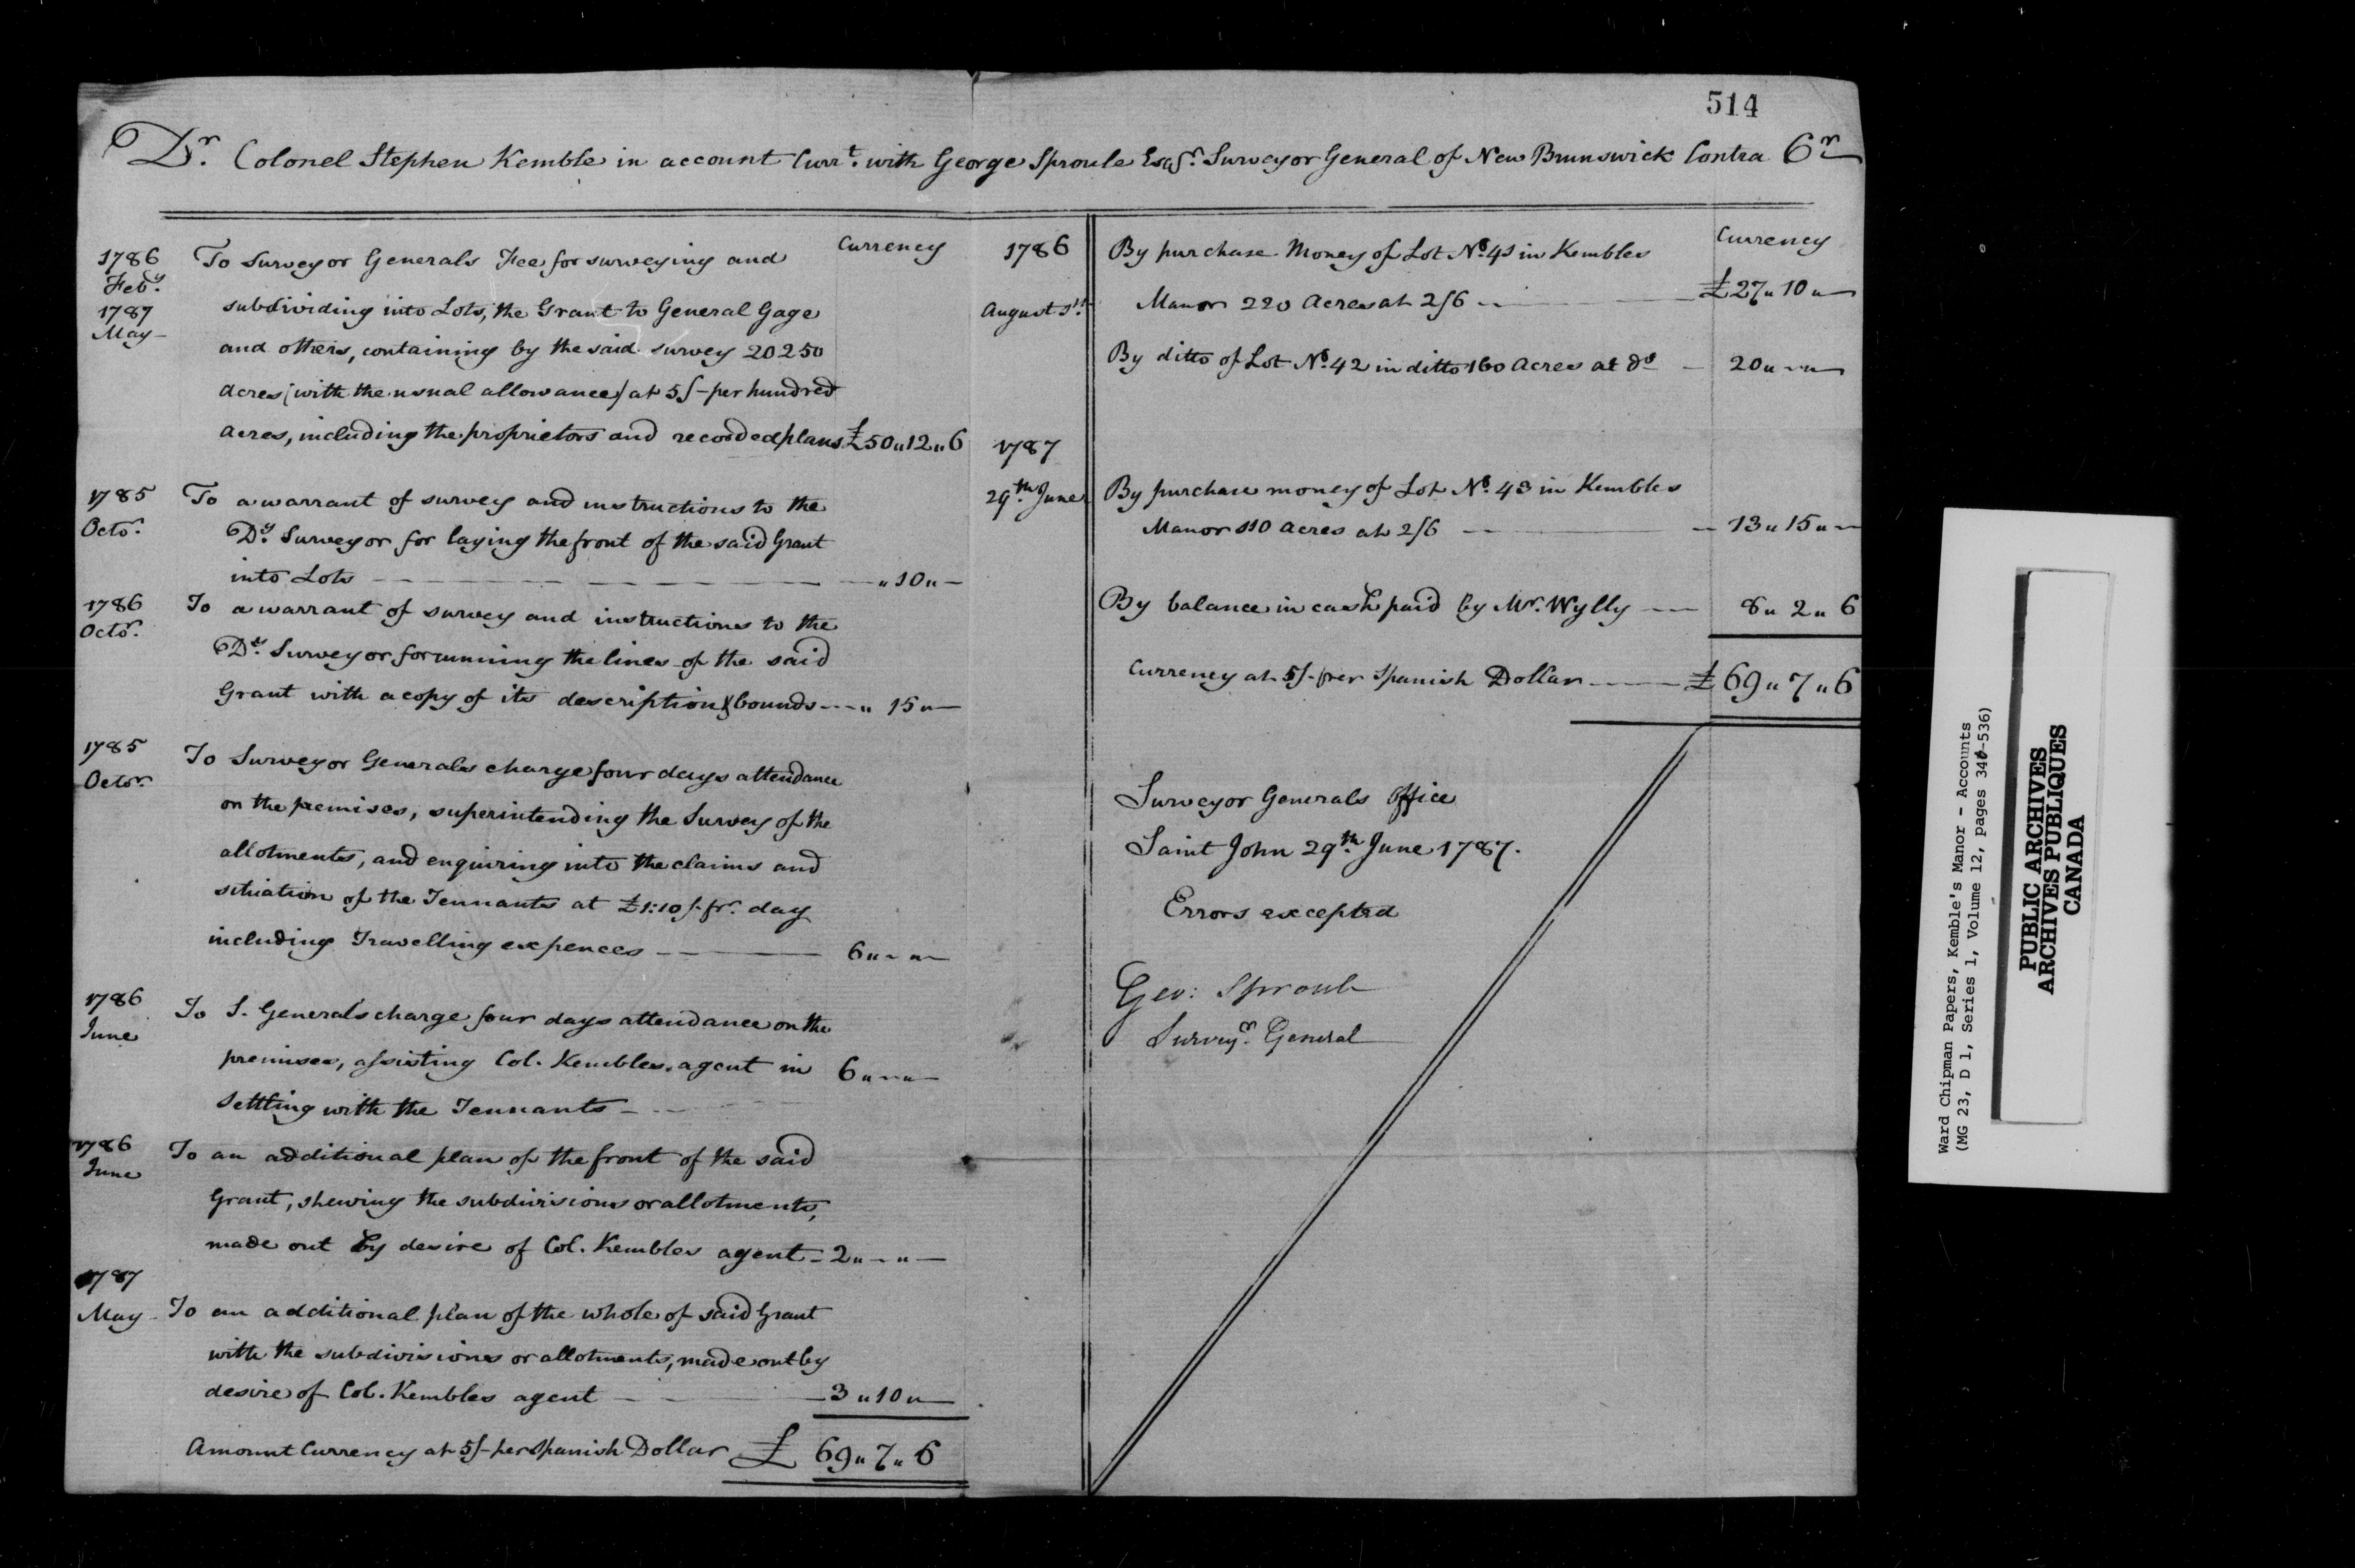 514
Dr. Colonel Stephen Kemble in account Currt. with George Sproule Esqr. Surveyor General of New Brunswick Contra Cr
Currency
1786
Feby.
1787
May
To Surveyor Generals Fee for surveying and
subdividing into Lots, the Grant to General Gage
and others, containing by the said survey 20250
acres (with the usual allowance) at 5/- per hundred
acres, including the proprietors and recorded plans £50"12"6
1785
Octor.
To a warrant of survey and instructions to the
Dy. Surveyor for laying the front of the said Grant
into Lots — — — — "10"—
1786
Octor.
To a warrant of survey and instructions to the
Dy. Surveyor for running the lines of the said
Grant with a copy of its description & bounds --- " 15"—
1785
Octor.
To Surveyor Generals charge four days attendance
on the premises, superintending the Survey of the
allotments, and enquiring into the claims and
situation of the Tennants at £1:10/- pr. day
including Travelling expences — — — 6"-"-
1786
June
To S. General's charge four days attendance on the
premises, assisting Col. Kembles agent in 6"-"-
settling with the Tennants -
1786
June
To an additional plan of the front of the said
Grant, shewing the subdivisions or allotments,
made out by desire of Col. Kembles agent - 2"-"-
1787
May
To an additional plan of the whole of said Grant
with the subdivisions or allotments, made out by
desire of Col. Kembles agent — — 3"10"—
Amount Currency at 5/- per Spanish Dollar £ 69"7"6
Currency
1786
August 1st.
By purchase Money of Lot No. 41 in Kembles
Manor 220 Acres at 2/6 — £27"10"—
By ditto of Lot No. 42 in ditto 160 Acres at do — 20"-"-
1787
29th. June
By purchase money of Lot No. 43 in Kembles
Manor 110 acres at 2/6 — — 13"15"—
By balance in cash paid by Mr. Wylly — 8"2"6
Currency at 5/- per Spanish Dollar — £69"7"6
Surveyor Generals Office
Saint John 29th. June 1787.
Errors excepted
Geo: Sproule
Surveyr. General
Ward Chipman Papers, Kemble's Manor - Accounts
(MG 23, D 1, Series 1, Volume 12, pages 340-536)
PUBLIC ARCHIVES
ARCHIVES PUBLIQUES
CANADA